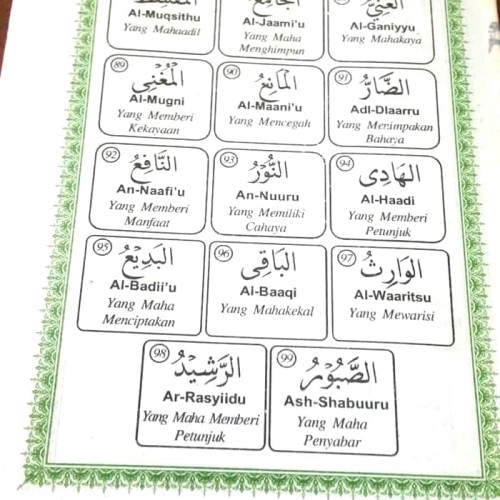 المقسط
Al-Muqsithu
Yang Mahaadil
الجامع
Al-Jaami'u
Yang Maha
Menghimpun
الغني
Al-Ganiyyu
Yang Mahakaya
89
المغني
Al-Mugni
Yang Memberi
Kekayaan
90
المانع
Al-Maani'u
Yang Mencegah
91
الضار
Adl-Dlaarru
Yang Menimpakan
Bahaya
92
النافع
An-Naafi'u
Yang Memberi
Manfaat
93
النور
An-Nuuru
Yang Memiliki
Cahaya
94
الهادى
Al-Haadi
Yang Memberi
Petunjuk
95
البديع
Al-Badii'u
Yang Maha
Menciptakan
96
الباقى
Al-Baaqi
Yang Mahakekal
97
الوارث
Al-Waaritsu
Yang Mewarisi
98
الرشيد
Ar-Rasyiidu
Yang Maha Memberi
Petunjuk
99
الصبور
Ash-Shabuuru
Yang Maha
Penyabar